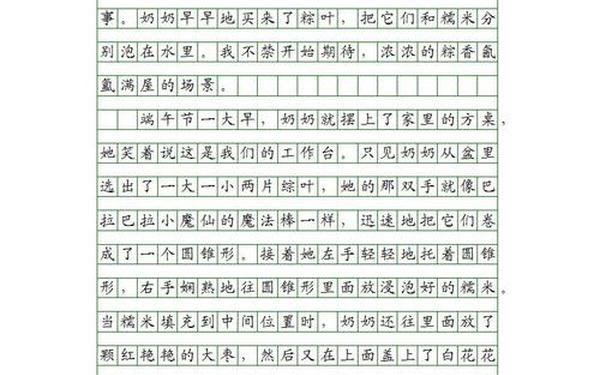 事。奶奶早早地买来了粽叶，把它们和糯米分
别泡在水里。我不禁开始期待，浓浓的粽香氤
氲满屋的场景。
端午节一大早，奶奶就摆上了家里的方桌，
她笑着说这是我们的工作台。只见奶奶从盆里
选出了一大一小两片综叶，她的那双手就像巴
拉巴拉小魔仙的魔法棒一样，迅速地把它们卷
成了一个圆锥形。接着她左手轻轻地托着圆锥
形，右手娴熟地往圆锥形里面放浸泡好的糯米。
当糯米填充到中间位置时，奶奶还往里面放了
颗红艳艳的大枣，然后又在上面盖上了白花花